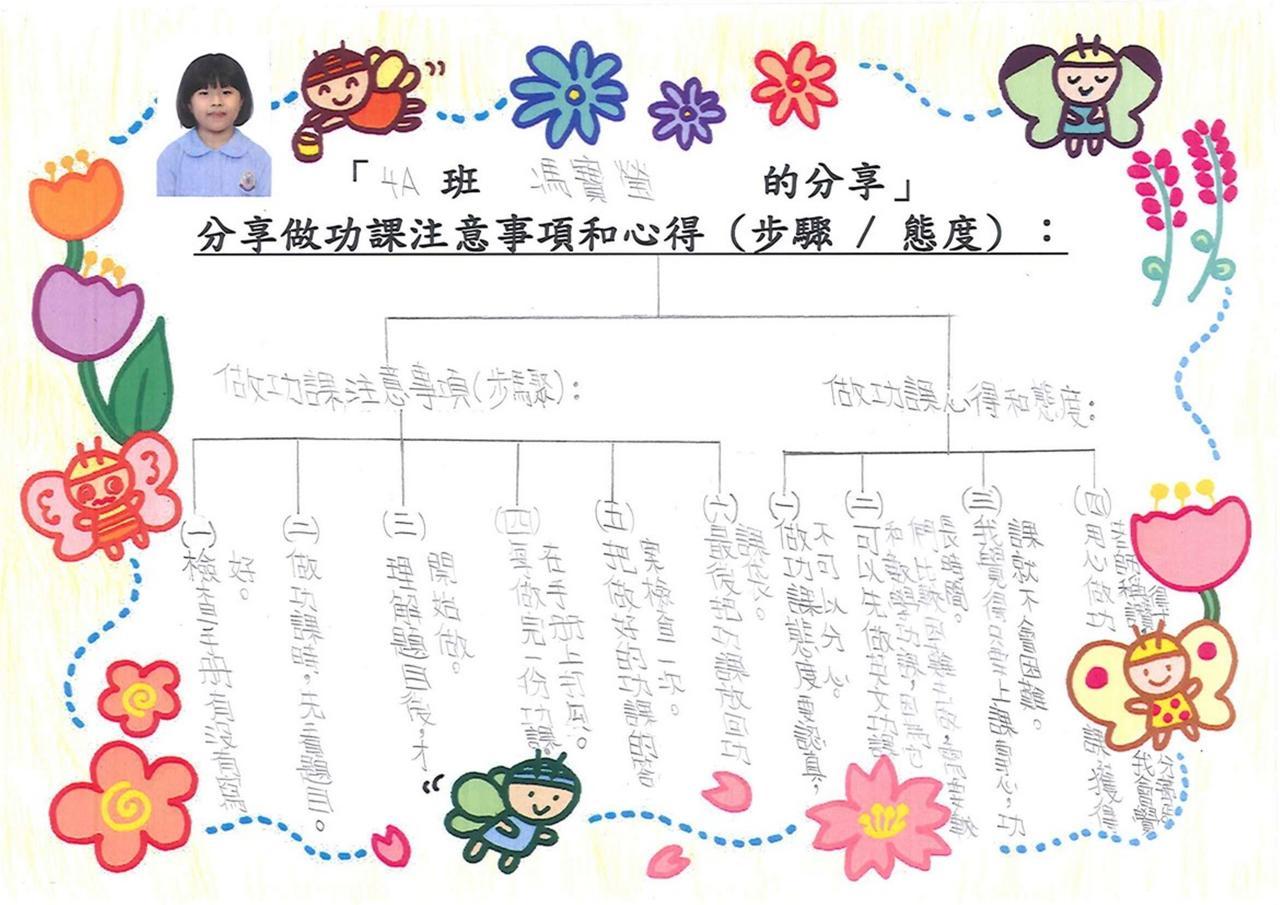 「4A 班 馮寶瑩 的分享」
分享做功課注意事項和心得（步驟 / 態度）：
做功課注意事項(步驟)：
(一)檢查手冊有沒有寫
好。
(二)做功課時，先看題目。
(三)理解題目後，才
開始做。
(四)要做完一份功課，
在手冊上
(五)把做好的功課的答
案檢查一次。
(六)最後把功課放回功
課袋。
做功課心得和態度：
(一)做功課態度要認真，
不可以分心。
(二)可以先做英文功課
和數學功課，因為它
們比較
長時間。
(三)我覺得只要上課專心，功
課就不會困難。
(四)用心做功